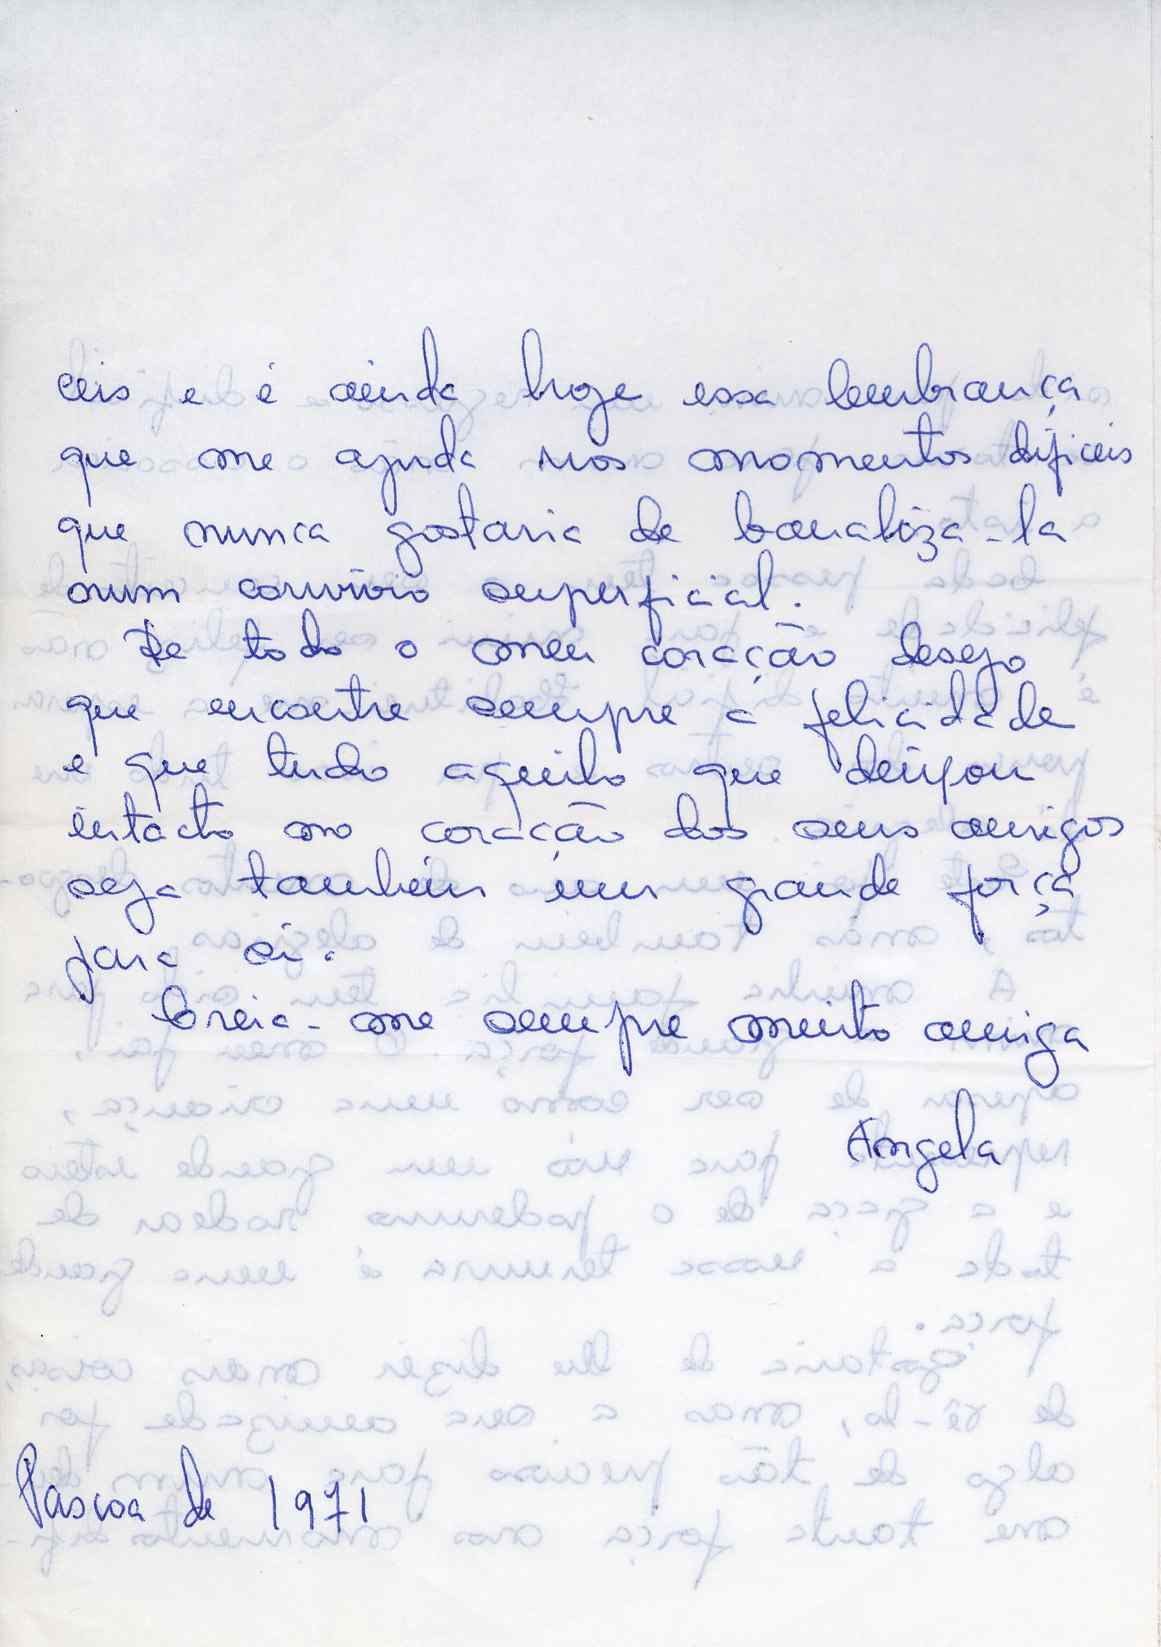 ceis e é ainda hoje essa lembrança
que me ajuda nos momentos dificeis
que nunca gostaria de banaliza-la
num convivio superficial.
De todo o meu coração desejo
que encontre sempre a felicidade
e que tudo aquilo que deixou
intacto no coração dos seus amigos
seja também um grande força
para si.
Creia-me sempre muito amiga
Angela
Pascoa de 1971